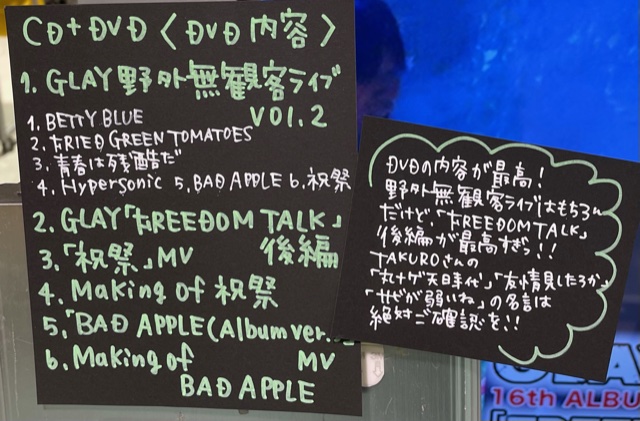 CD+DVD〈DVD内容〉
1. GLAY野外無観客ライブ
VOl.2
1. BETTY BLUE
2. FRIED GREEN TOMATOES
3. 青春は残酷だ
4. Hypersonic 5. BAD APPLE 6. 祝祭
2. GLAY「FREEDOM TALK」
後編
3.「祝祭」MV
4. Making of 祝祭
5.「BAD APPLE(Album ver.
MV
6. Making of
BAD APPLE
DVDの内容が最高!
野外無観客ライブはもちろん
だけど「FREEDOM TALK」
後編が最高すぎっ!!
TAKUROさんの
「丸ナゲ天日時代」「友情見したろか」
「サビが弱いね」の名言は
絶対ご確認を!!
16th ALBU